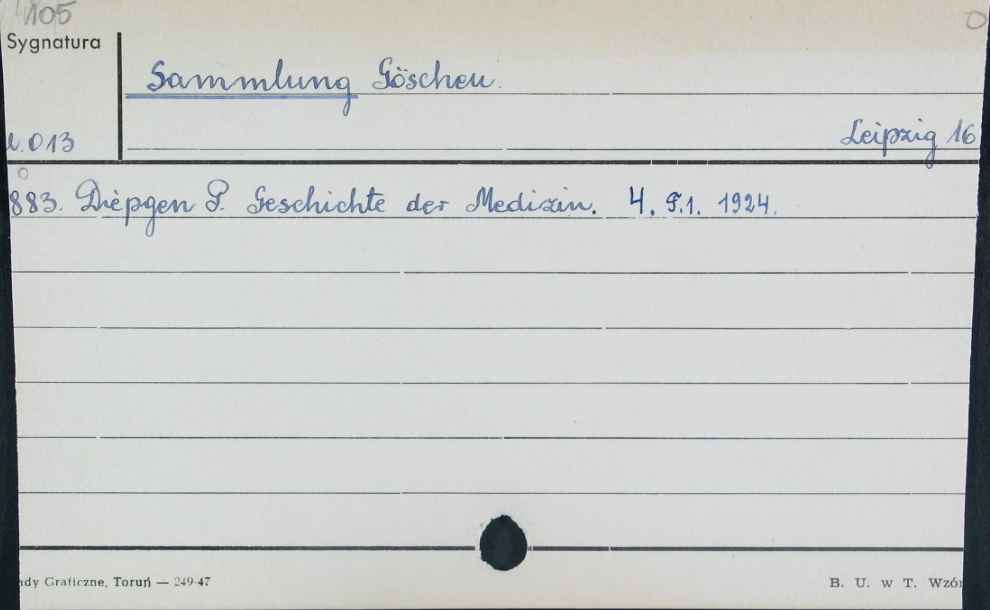 105
Sygnatura
Sammlung Göschen.
013
Leipzig 16
883. Diepgen P. Geschichte der Medizin. 4. T.1. 1924.
Graficzne, Toruń — 249-47
B. U. w T. Wzór